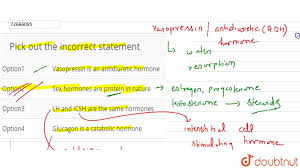 72666095
Pick out the incorrect statement
Option1 Vasopressin is an antidiuretic hormone
Option2 Sex hormones are protein in nature
Option3 LH and ICSH are the same hormones
Option4 Glucagon is a catabolic hormone
Vasopressin / antidiuretic (ADH)
hormone
water
resorption
estrogen, progesterone
testosterone → steroids
interstitial cell
stimulating hormone
doubtnut